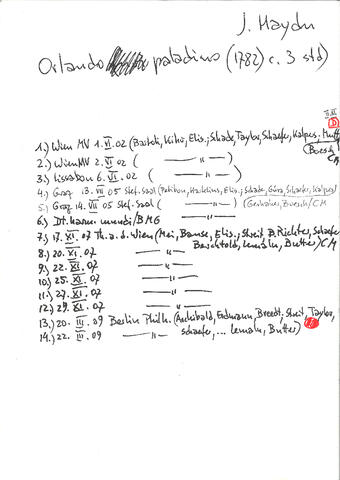 J. Haydn
Orlando paladino (1782) c. 3 std)
II.XI
D
1.) Wien MV 1. VI. 02 (Bartoli, Kihr, Elis.; Schade, Taylor, Schaefer, Kalpers, Muff,
Boesch
CM
2.) Wien MV 2. VI. 02 ( —— " —— )
3.) Lissabon 6. VI. 02 ( —— " —— )
4.) Graz 13. VII 05 Stef. Saal (Petibon, Elis.; Schade, Güra, Schaefer, Kalpers)
5.) Graz 14. VII 05 Stef. Saal ( —— " —— ) (Gerhaher, Boesch/CM
6.) Dt. harm mundi/BMG —— " ——
7.) 17. XI. 07 Th. a. d. Wien (Mei, Banse, Elis.; Streit, B. Richter, Schaefer
Berchtold, Lemalu, Butter) CM
8.) 20. XI. 07 —— " ——
9.) 22. XI. 07 —— " ——
10.) 25. XI. 07 —— " ——
11.) 27. XI. 07 —— " ——
12.) 29. XI. 07 —— " ——
13.) 20. III. 09 Berlin Philh. (Archibald, Erdmann, Breedt; Streit, Taylor,
14.) 22. III. 09 —— " —— Schaefer, ... Lemalu, Butter)